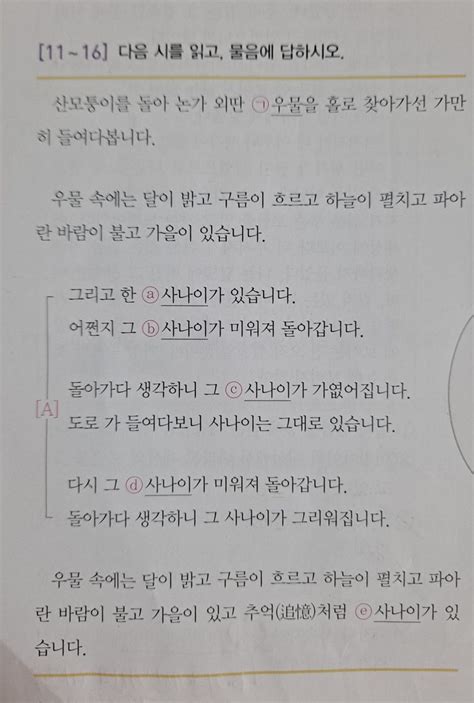 [11~16] 다음 시를 읽고, 물음에 답하시오.
산모퉁이를 돌아 논가 외딴 ㉠우물을 홀로 찾아가선 가만
히 들여다봅니다.
우물 속에는 달이 밝고 구름이 흐르고 하늘이 펼치고 파아
란 바람이 불고 가을이 있습니다.
그리고 한 ⓐ사나이가 있습니다.
어쩐지 그 ⓑ사나이가 미워져 돌아갑니다.
돌아가다 생각하니 그 ⓒ사나이가 가엾어집니다.
[A]
도로 가 들여다보니 사나이는 그대로 있습니다.
다시 그 ⓓ사나이가 미워져 돌아갑니다.
돌아가다 생각하니 그 사나이가 그리워집니다.
우물 속에는 달이 밝고 구름이 흐르고 하늘이 펼치고 파아
란 바람이 불고 가을이 있고 추억(追憶)처럼 ⓔ사나이가 있
습니다.